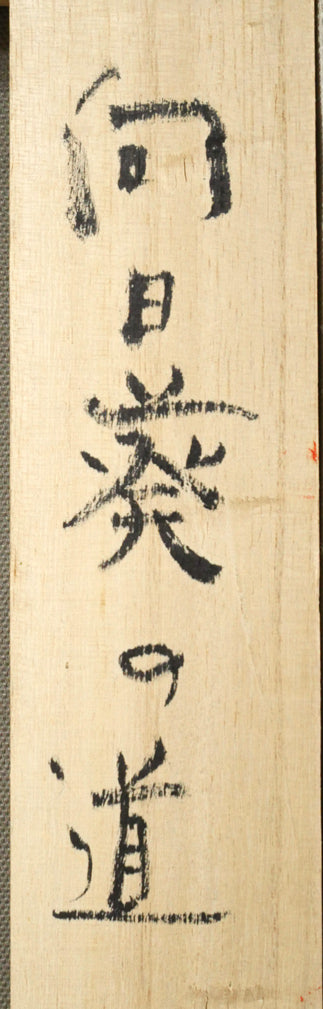 向日葵の道